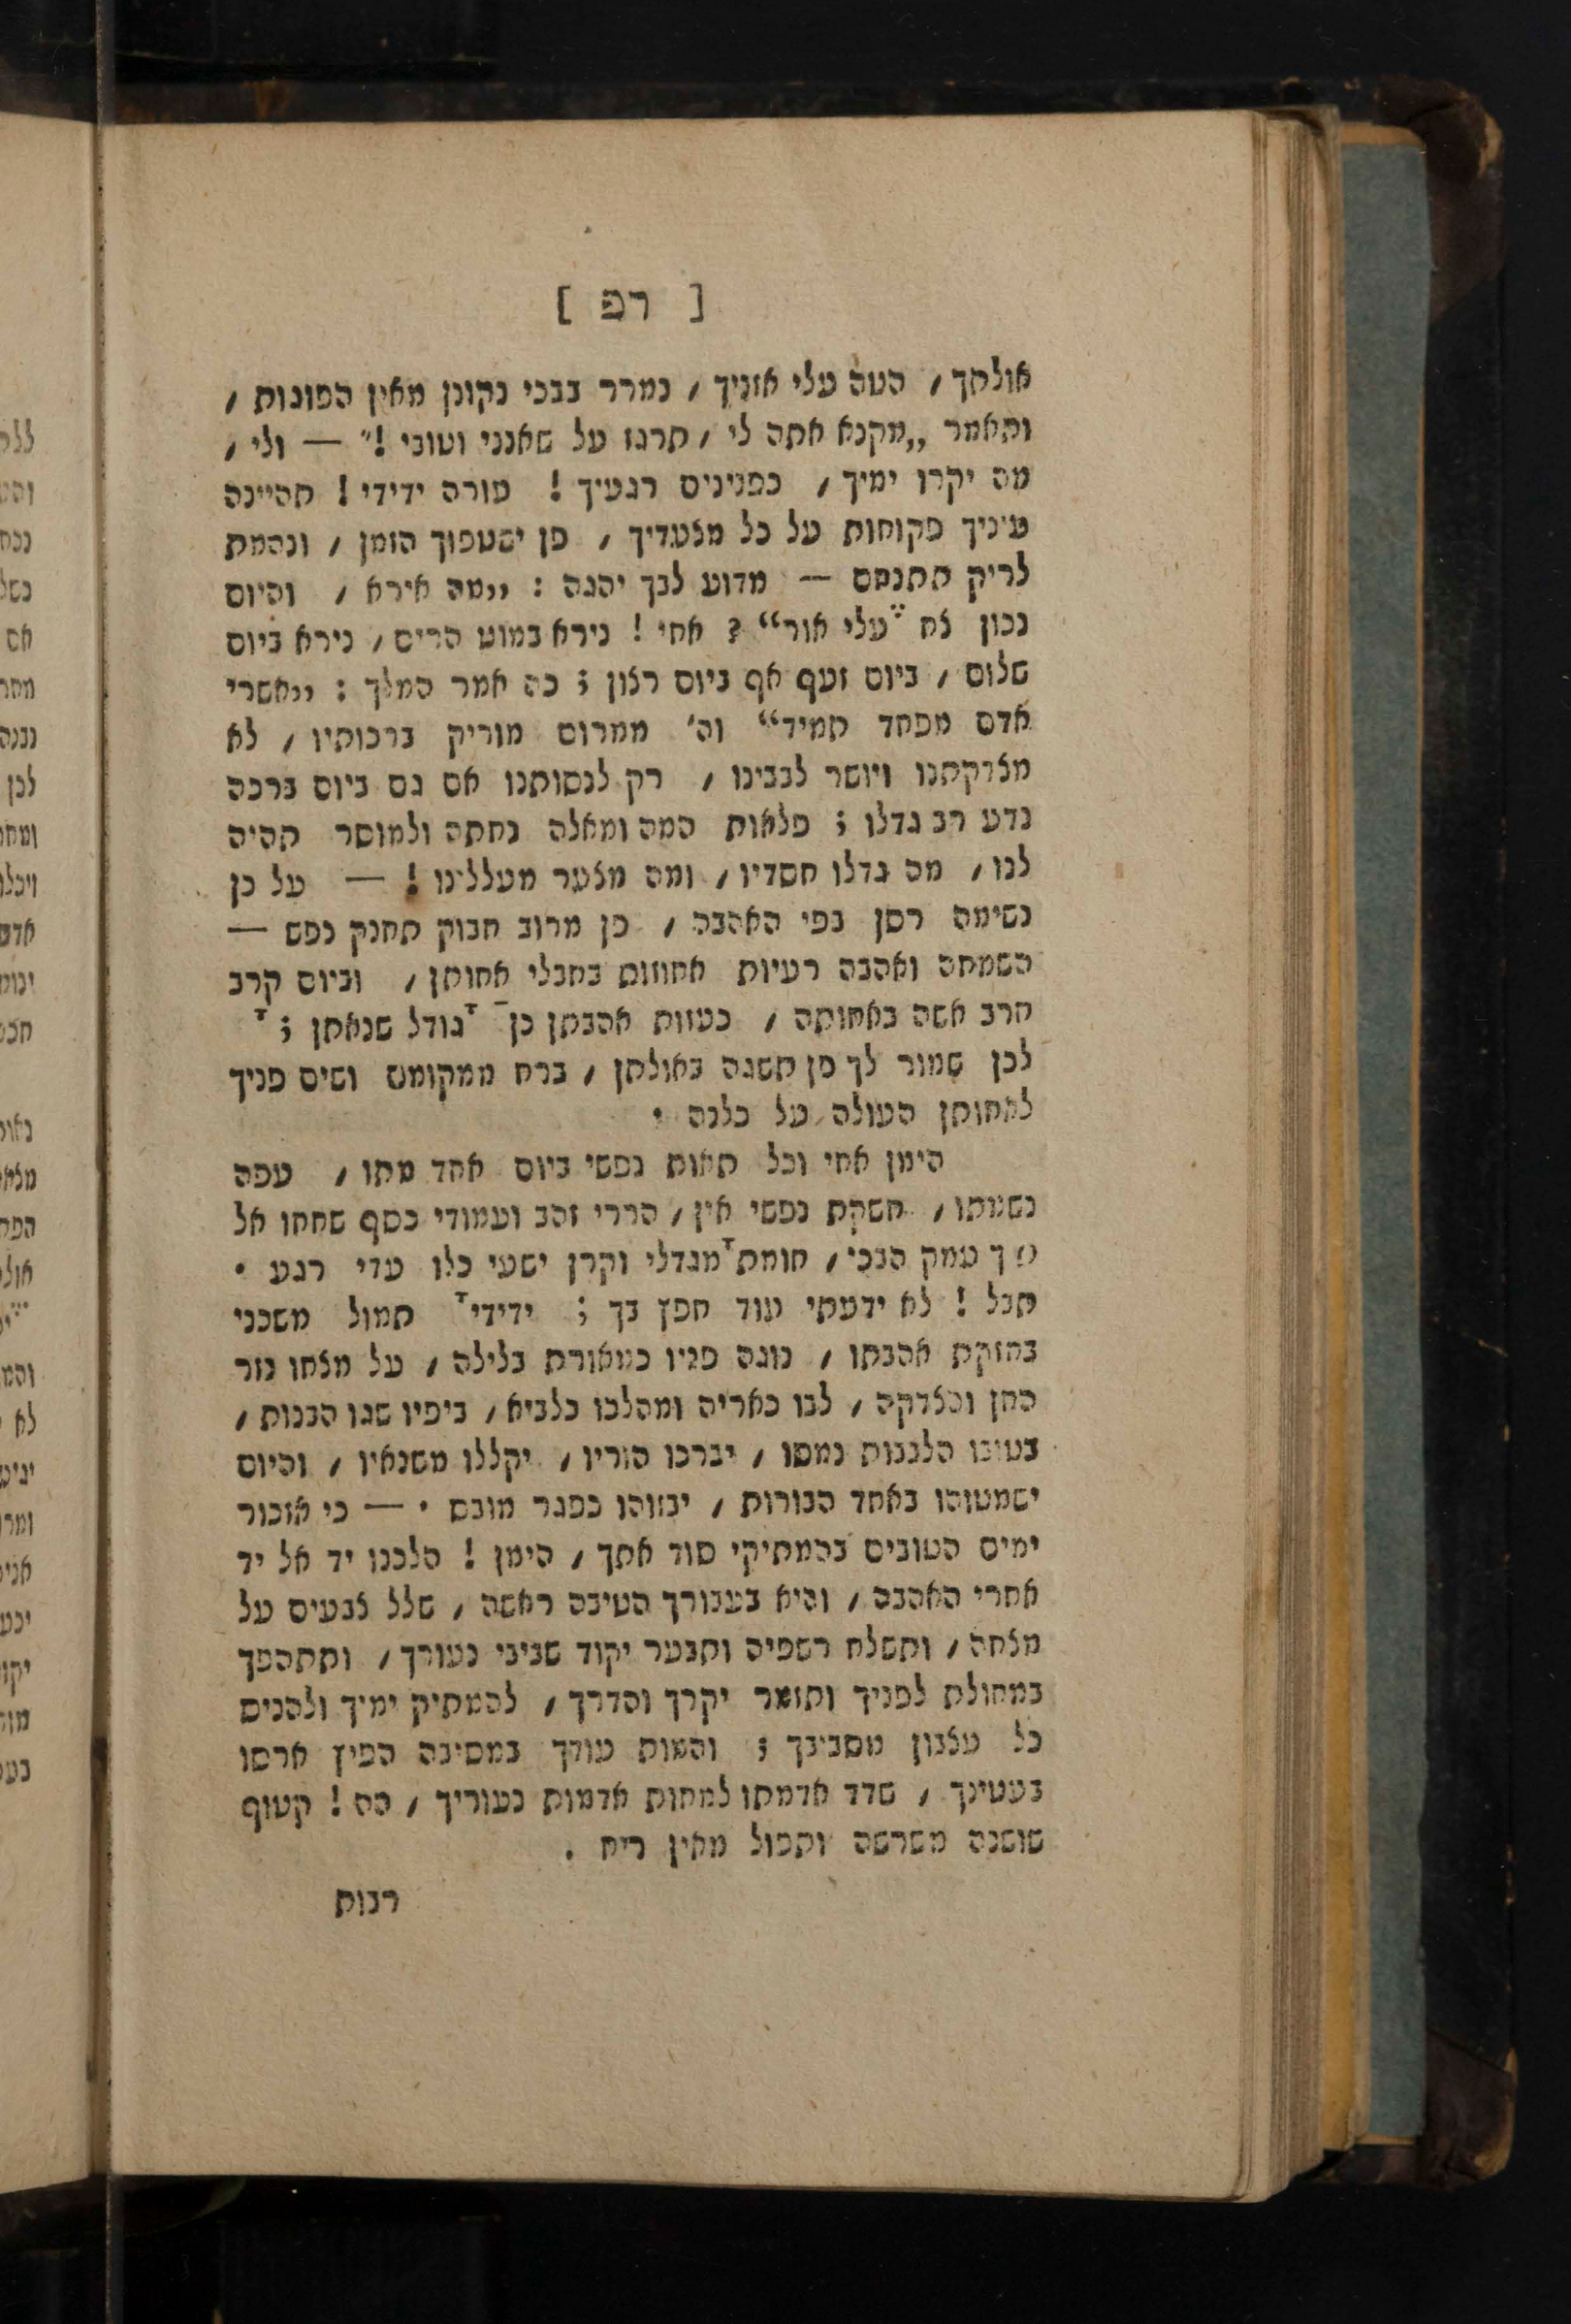 [ רפ ]
אולתך / הטה עלי אזניך / נמרר בבכי נקונן מאין הפוגות /
ותאמר „מקנא אתה לי / תרגז על שאנני וטובי !״ — ולי /
מה יקרו ימיך / כפנינים רגעיך ! עורה ידידי ! תהיינה
עיניך פקוחות על כל מצעדיך / פן ישטפוך הזמן / ונהמת
לריק תתנחם — מדוע לבך יהגה : „מה אירא / והיום
נכון צח עלי אור“ ? אחי ! נירא במוט הרים / נירא ביום
שלום / ביום זעף אף ביום רצון ; כה אמר המלך : „אשרי
אדם מפחד תמיד“ וה׳ ממרום מוריק ברכותיו / לא
מצדקתנו ויושר לבבינו / רק לנסותנו אם גם ביום ברכה
נדע רב גדלו ; פלאות המה ומאלה נחתה ולמוסר תהיה
לנו / מה גדלו חסדיו / ומה מצער מעללינו ! — על כן
נשימה רסן בפי האהבה / פן מרוב חבוק תחנק נפש —
השמחה ואהבה רעיות אחוזות בחבלי אחותן / וביום קרב
תרב אשה באחותה / כעזות אהבתן כן גודל שנאתן ;
לכן שמור לך פן תשגה באולתן / ברח ממקומש ושים פניך
לאחותן העולה על כלנה .
הימן אחי וכל תאות נפשי ביום אחד מתו / עפה
נשמתו / חשקת נפשי אין / הררי זהב ועמודי כסף שחחו אל
ך עמק הבכי / חומת מגדלי וקרן ישעי כלו עדי רגע .
תבל ! לא ידעתי עוד חפץ בך ; ידידי תמול משכני
בחזקת אהבתו / נוגה פניו כמאורת בלילה / על מצחו נזר
החן והצדקה / לבו כאריה ומהלכו כלביא / ביפיו שגו הבנות /
בטובו הלבבות נמסו / יברכו הוריו / יקללו משנאיו / והיום
ישמטוהו באחד הבורות / יבזוהו כפגר מובס . — כי אזכור
ימים הטובים בהמתיקי סוד אתך / הימן ! הלכנו יד אל יד
אחרי האהבה / והיא בעבורך הטיבה ראשה / שלל צבעים על
מצחה / ותשלח רשפיה ותבער יקוד שביבי נעורך / ותתהפך
במחולת לפניך ותואר יקרך והדרך / להמתיק ימיך ולהניס
כל עצבון מסביבך ; והמות עורך במסיבה הפיץ ארסו
בעטינך / שדד אדמתו למחות אדמות נעוריך / הה ! קטוף
שושנה משרשה ותבול מאין ריח .
רבות